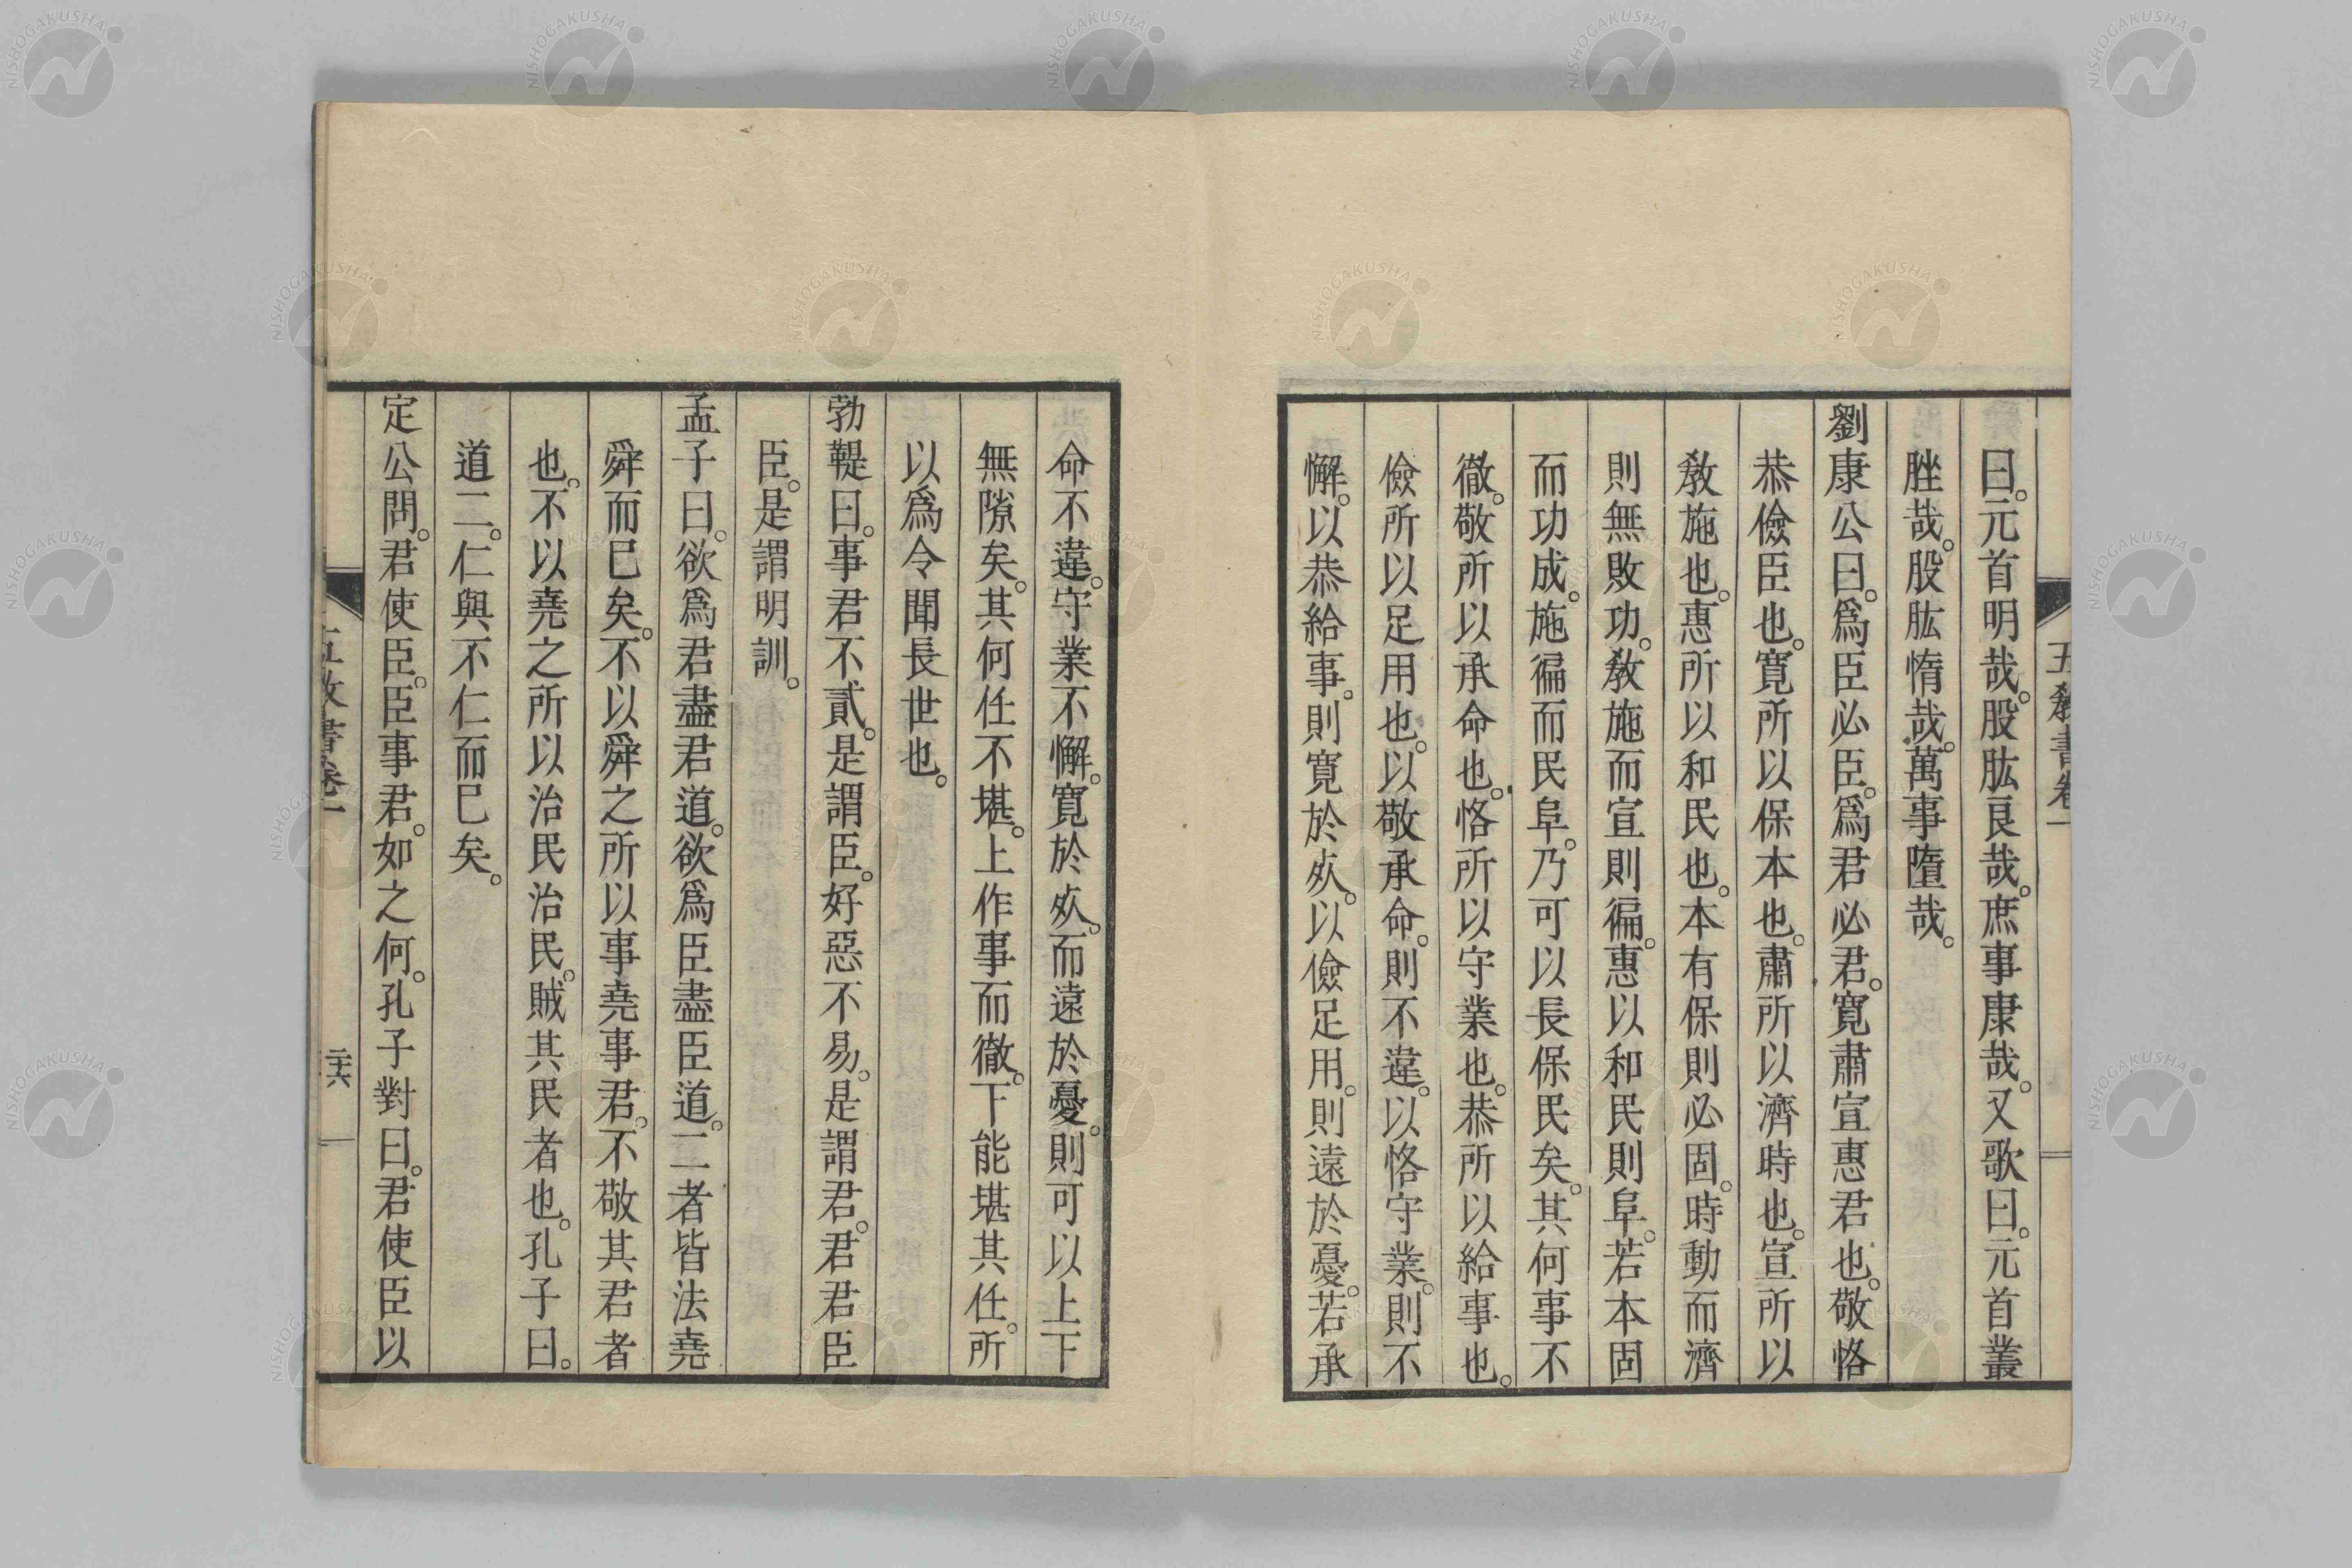 五教書卷一
曰。元首明哉。股肱良哉。庶事康哉。又歌曰。元首叢
脞哉。股肱惰哉。萬事墮哉。
劉康公曰。爲臣必臣。爲君必君。寬肅宣惠君也。敬恪
恭儉臣也。寬所以保本也。肅所以濟時也。宣所以
敎施也。惠所以和民也。本有保則必固。時動而濟
則無敗功。敎施而宣則徧。惠以和民則阜。若本固
而功成。施徧而民阜。乃可以長保民矣。其何事不
徹。敬所以承命也。恪所以守業也。恭所以給事也。
儉所以足用也。以敬承命。則不違。以恪守業。則不
懈。以恭給事。則寬於㱙。以儉足用。則遠於憂。若承
命不違。守業不懈。寬於㱙。而遠於憂。則可以上下
無隙矣。其何任不堪。上作事而徹。下能堪其任。所
以爲令聞長世也。
勃鞮曰。事君不貳。是謂臣。好惡不易。是謂君。君君臣
臣。是謂明訓。
孟子曰。欲爲君盡君道。欲爲臣盡臣道。二者皆法堯
舜而已矣。不以舜之所以事堯事君。不敬其君者
也。不以堯之所以治民治民。賊其民者也。孔子曰。
道二。仁與不仁而已矣。
定公問。君使臣。臣事君。如之何。孔子對曰。君使臣以
五敎書卷一
二十六
NISHOGAKUSHA
NISHOGAKUSHA
NISHOGAKUSHA
NISHOGAKUSHA
NISHOGAKUSHA
NISHOGAKUSHA
NISHOGAKUSHA
NISHOGAKUSHA
NISHOGAKUSHA
NISHOGAKUSHA
NISHOGAKUSHA
NISHOGAKUSHA
NISHOGAKUSHA